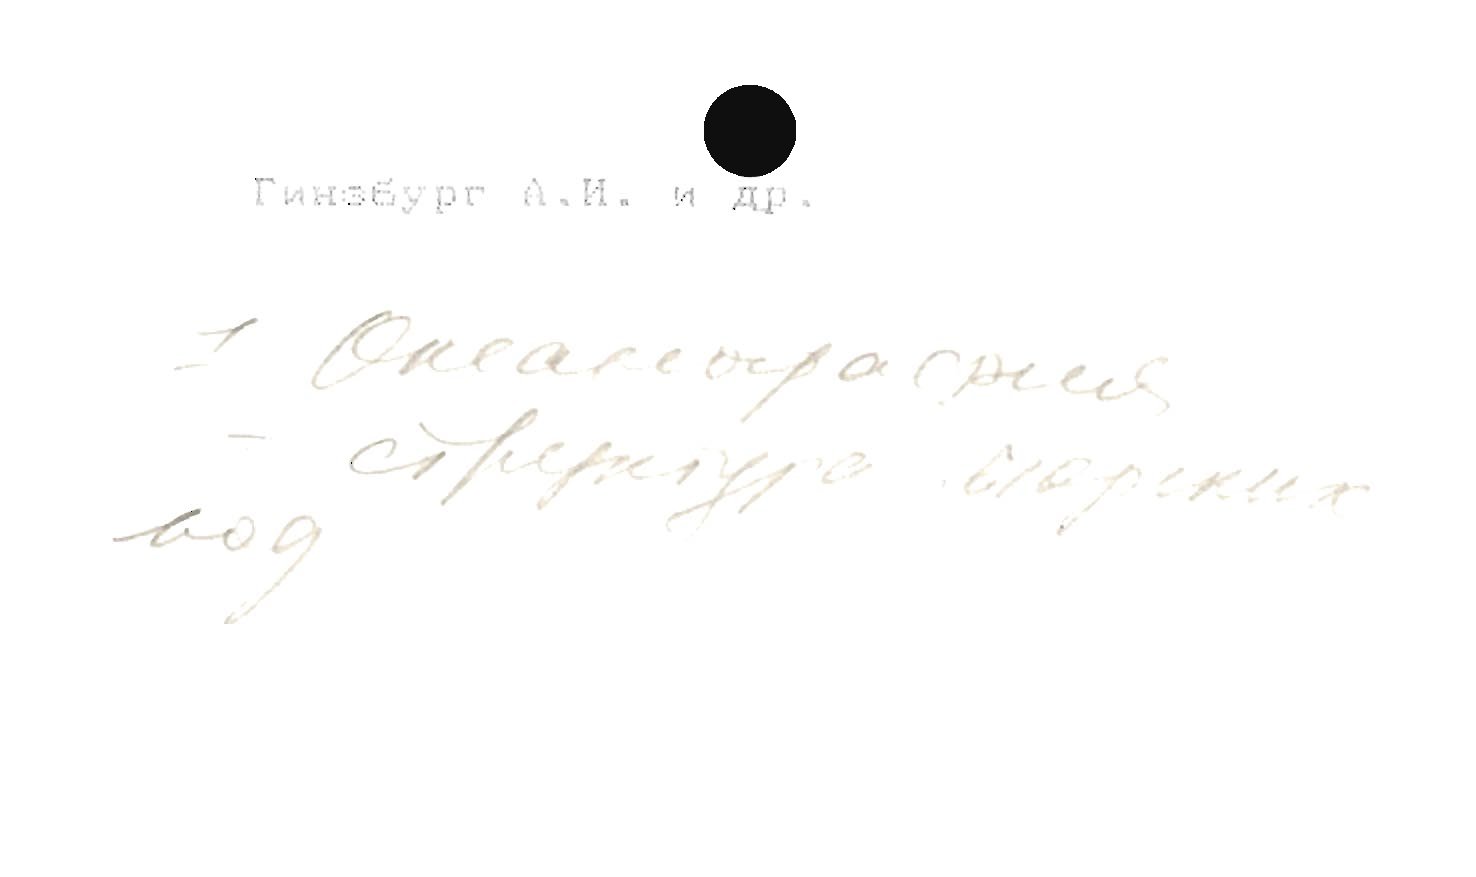 Гинзбург А.И. и др.
1 Океанография
- структура морских
вод